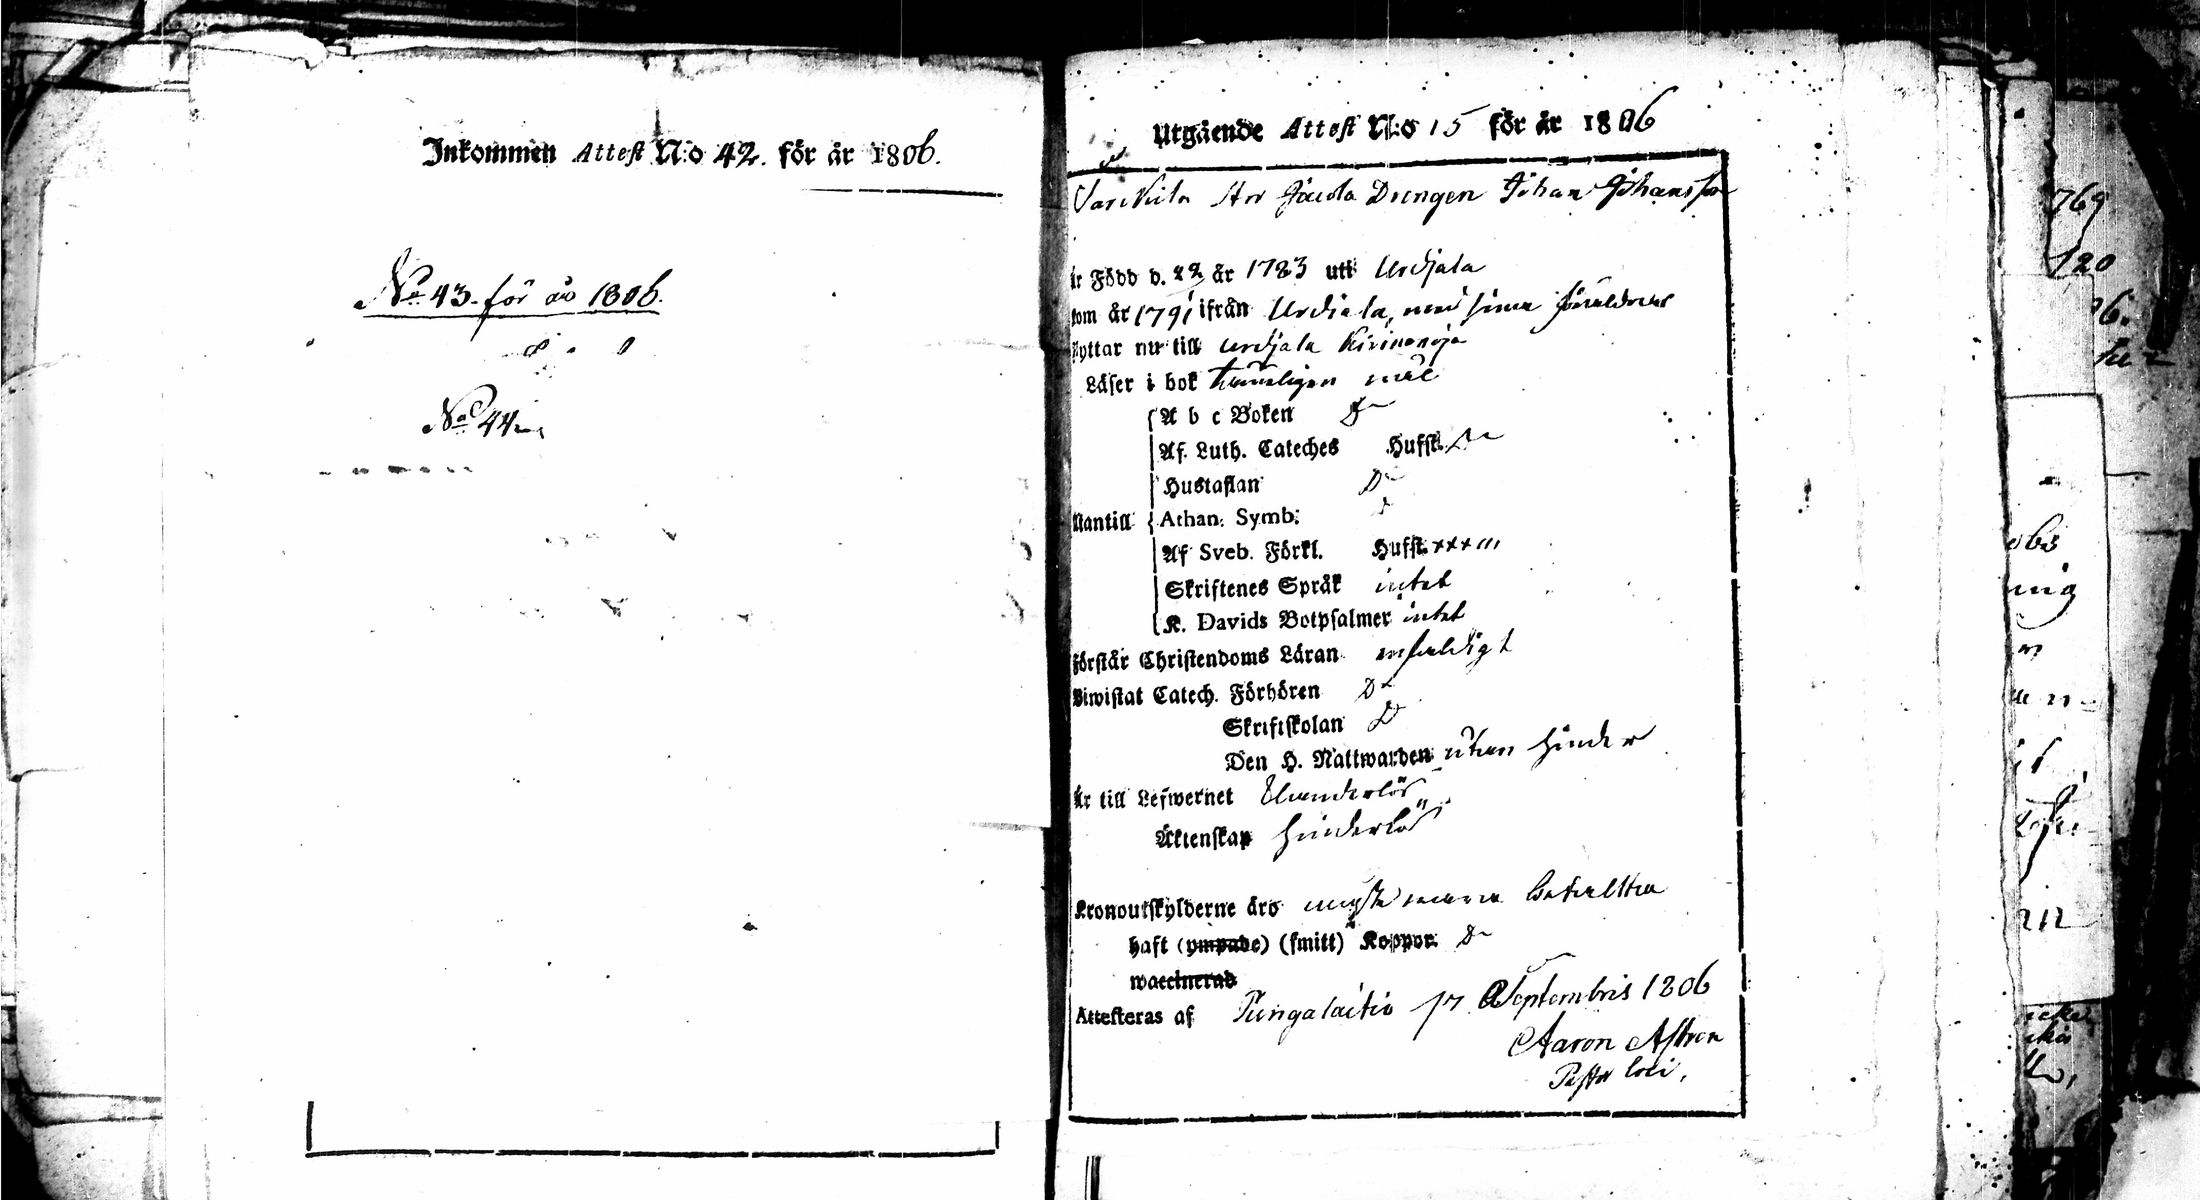 Inkommen Attest N:o 42. för år 1806.
No 43. för år 1806.
No 44
Utgående Attest N:o 15 för år 1806
Jacola Drengen Johan Johansson
är Född d. 22 år 1783 uti Urdjala
kom år 1791 ifrån Urdiala, med sina föräldrar
flyttar nu till Urdjala
Läser i bok temmeligen wäl
A b c Boken Do
Af. Luth. Cateches Hufst. Do
Hustaflan Do
Nantill
Athan. Symb.
Af Sveb. Förkl. Hufst. xxx ///
Skriftenes Språk intet
K. Davids Botpsalmer intet
Förstår Christendoms Läran enfaldigt
Biwistat Catech. Förhören Do
Skriftskolan Do
Den H. Nattwarden utan hinder
är till Lefwernet
Äktenskap hinderlös
Kronoutskylderne äro betalta
haft (ympade) (smitt) Koppor. Do
waccinerad
Attesteras af Pungalaitio 17 Septembris 1806
Aaron Astren
Past loci.
769
120